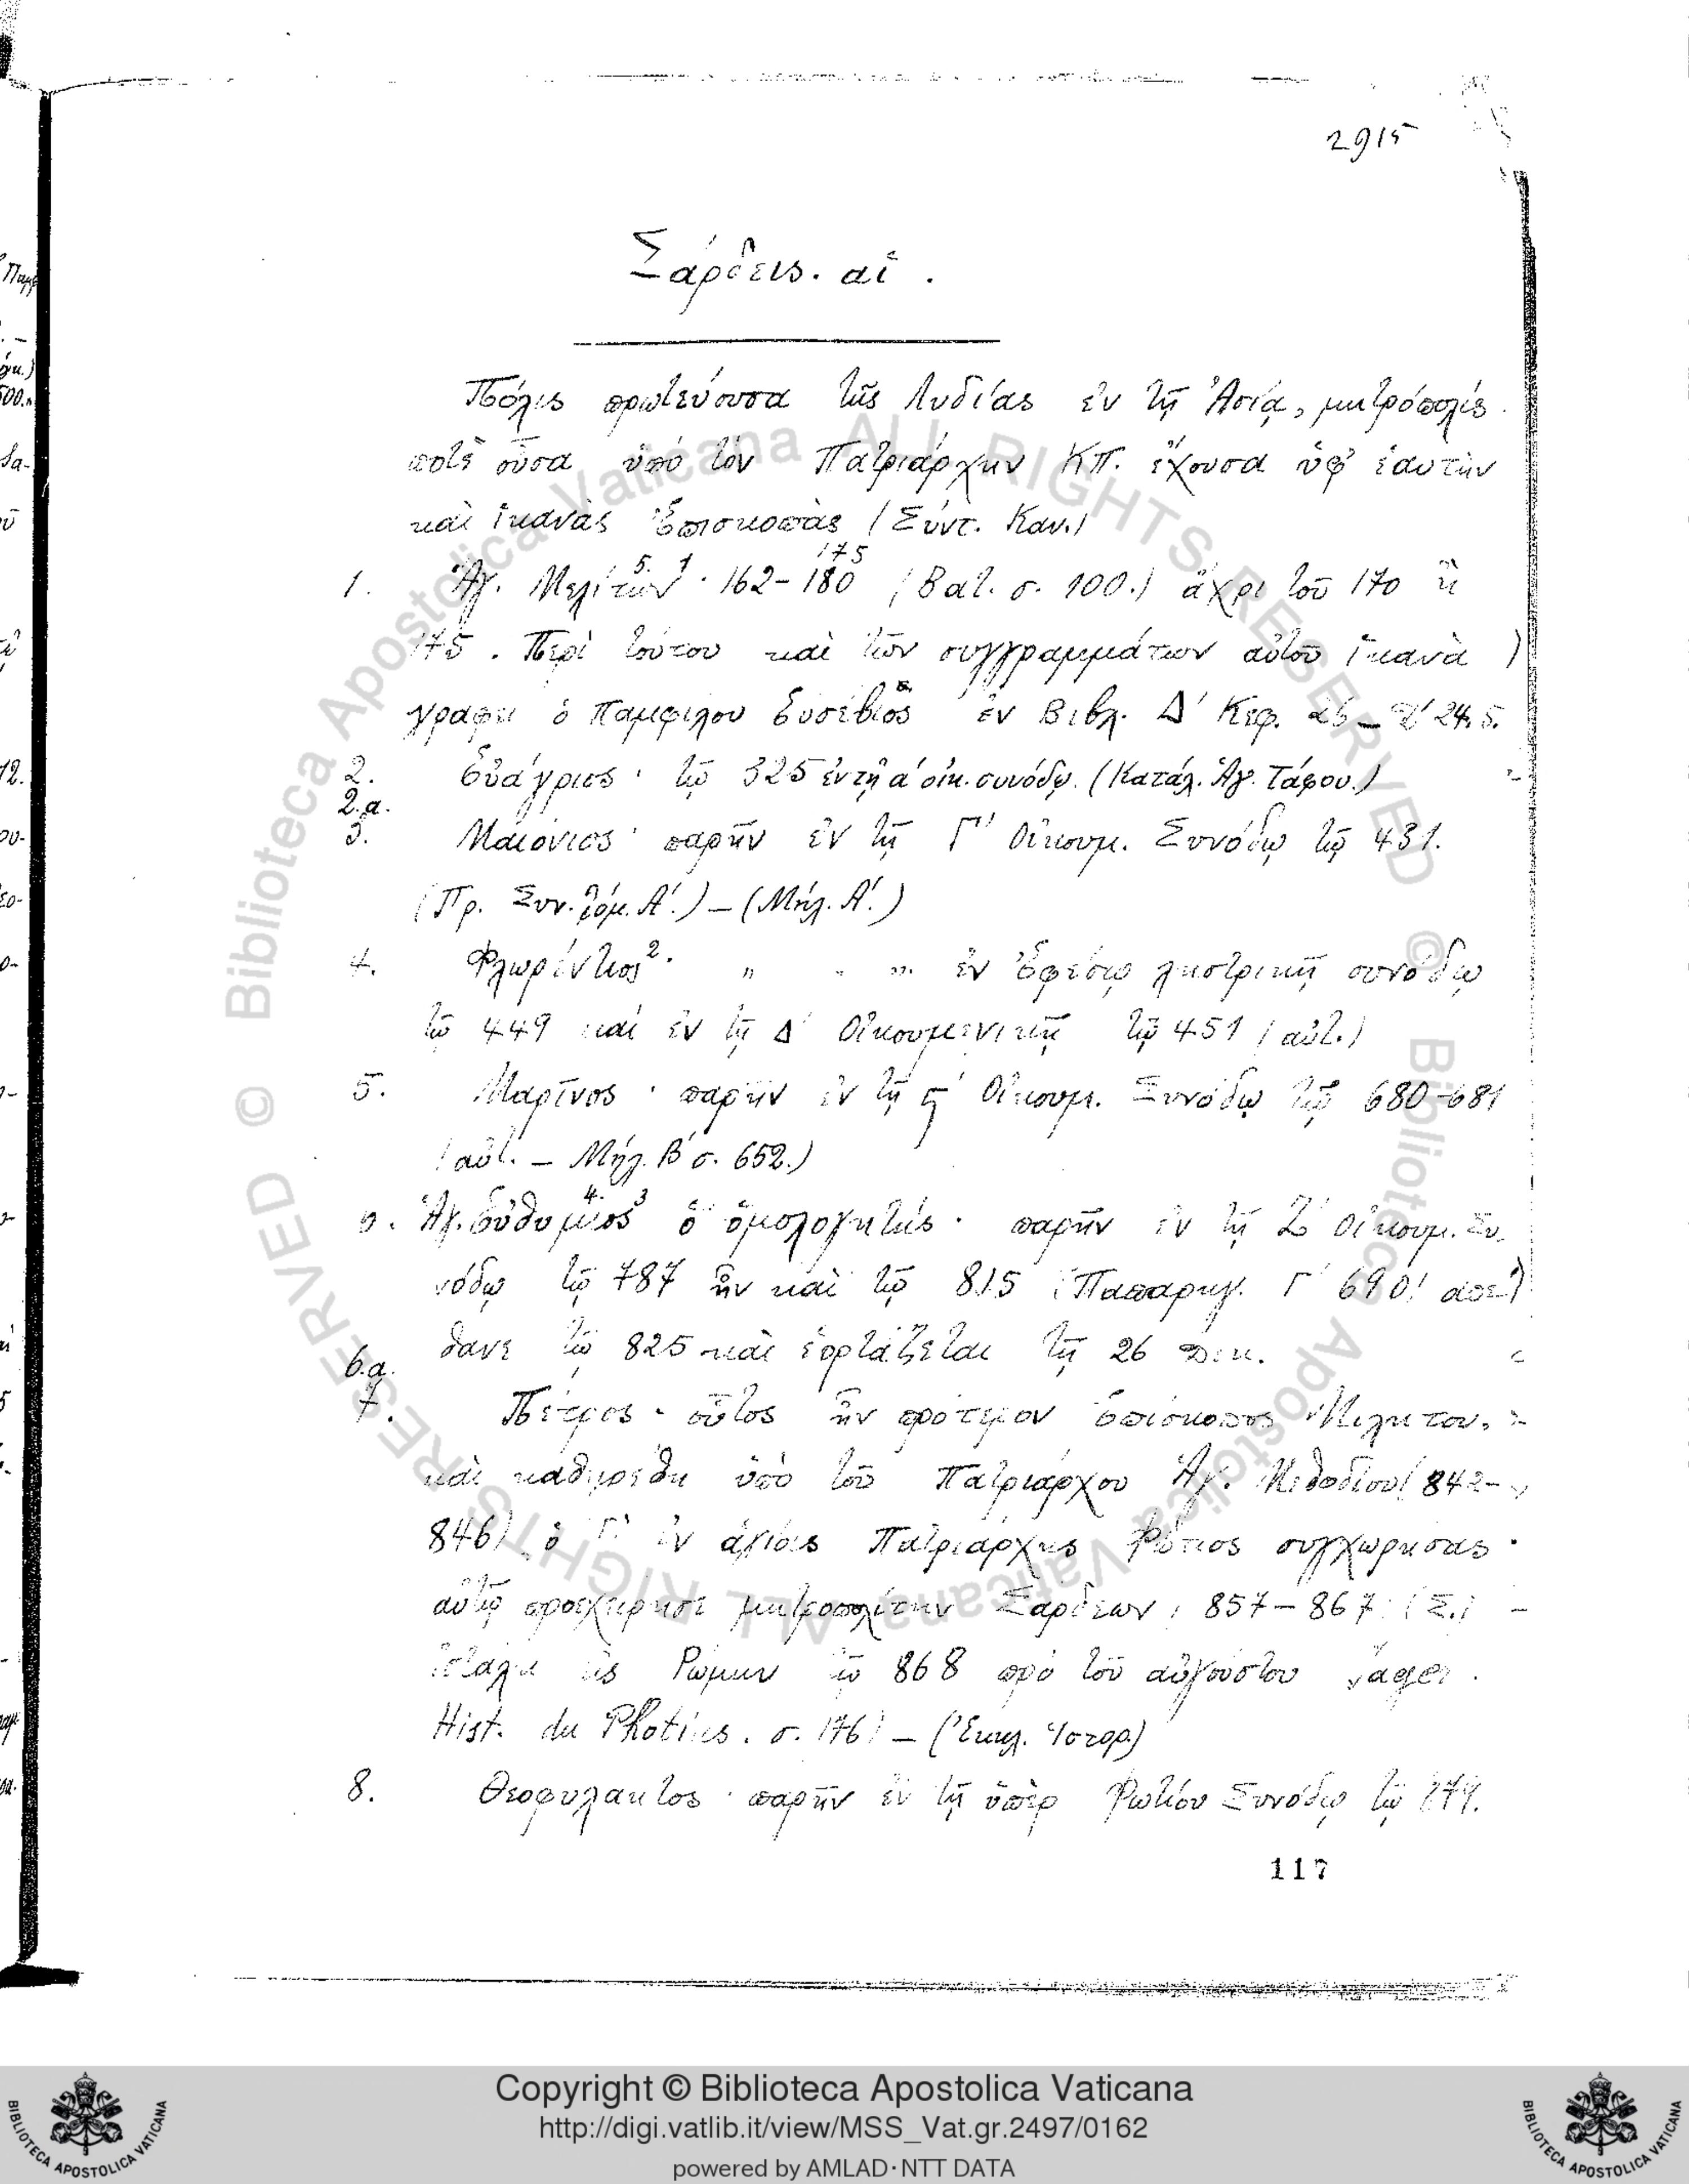 2915
Σάρδεις. αἱ.
Πόλις πρωτεύουσα τῆς Λυδίας ἐν τῇ Ἀσίᾳ, μητρόπολις
ποτὲ οὖσα ὑπὸ τὸν Πατριάρχην ΚΠ. ἔχουσα ὑφ' ἑαυτὴν
καὶ ἱκανὰς Ἐπισκοπὰς (Σύντ. Καν.)
175
1. Ἅγ. Μελίτων 5 1 · 162-180 (Βατ. σ. 100.) ἄχρι τοῦ 170 ἢ
175. Περὶ τούτου καὶ τῶν συγγραμμάτων αὐτοῦ ἱκανὰ
γράφει ὁ Παμφίλου Εὐσέβιος ἐν Βιβλ. Δ' Κεφ. 26 – 24.5.
2. Εὐάγριος · τῷ 325 ἐν τῇ α' οἰκ. συνόδῳ. (Κατάλ. Ἁγ. Τάφου.)
2.α.
3. Μαιόνιος · παρῆν ἐν τῇ Γ' Οἰκουμ. Συνόδῳ τῷ 431.
(Πρ. Συν. τόμ. Α'.) – (Μήλ. Α'.)
4. Φλωρέντιος 2 · " " " ἐν Ἐφέσῳ λῃστρικῇ συνόδῳ
τῷ 449 καὶ ἐν τῇ Δ' Οἰκουμενικῇ τῷ 451 (αὐτ.)
5. Μαρῖνος · παρῆν ἐν τῇ ϛ' Οἰκουμ. Συνόδῳ τῷ 680-681
(αὐτ. – Μήλ. Β' σ. 652.)
Ἅγ. Εὐθύμιος 4. 3 ὁ ὁμολογητής · παρῆν ἐν τῇ Ζ' Οἰκουμ. Συ-
νόδῳ τῷ 787 ἦν καὶ τῷ 815 (Παπαρηγ. Γ' 690) ἀπέ-
θανε τῷ 825 καὶ ἑορτάζεται τῇ 26 Δεκ.
6.α.
7. Πέτρος · οὗτος ἦν πρότερον Ἐπίσκοπος Μιλήτου,
καὶ καθῃρέθη ὑπὸ τοῦ Πατριάρχου Ἁγ. Μεθοδίου (842-
846) ὁ δ' ἐν ἁγίοις Πατριάρχης Φώτιος συγχωρήσας
αὐτῷ προεχείρησε μητροπολίτην Σάρδεων, 857–867 (Σ.) –
ἐστάλη εἰς Ρώμην τῷ 868 πρὸ τοῦ αὐγούστου Jager.
Hist. du Photius. σ. 176) – (Ἐκκλ. Ἱστορ.)
8. Θεοφύλακτος · παρῆν ἐν τῇ ὑπὲρ Φωτίου Συνόδῳ τῷ 879.
117
© Biblioteca Apostolica Vaticana ALL RIGHTS RESERVED
© Biblioteca Apostolica Vaticana ALL RIGHTS RESERVED
Copyright © Biblioteca Apostolica Vaticana
http://digi.vatlib.it/view/MSS_Vat.gr.2497/0162
powered by AMLAD·NTT DATA
BIBLIOTECA APOSTOLICA VATICANA
BIBLIOTECA APOSTOLICA VATICANA